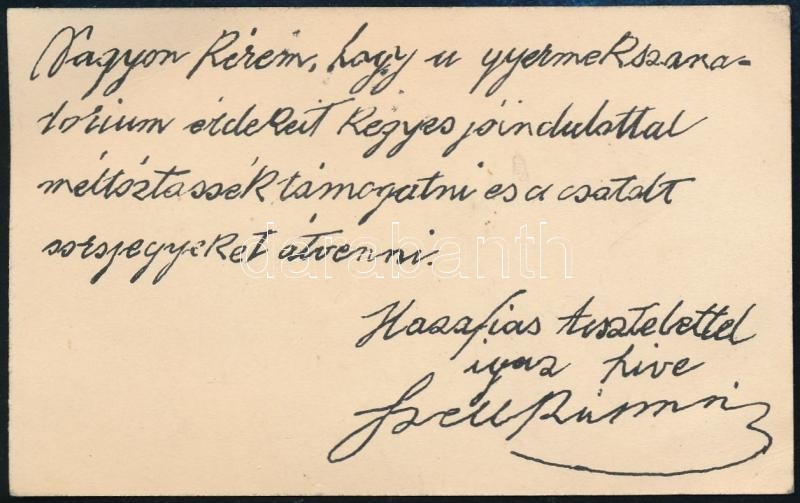 Nagyon kérem, hogy a gyermekszana-
torium érdekeit kegyes jóindulattal
méltóztassék támogatni és a csatolt
sorsjegyeket átvenni.
darabanth
Hazafias tisztelettel
igaz hive
Széll Kálmán